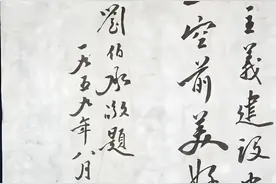 主義建設
空前美好
劉伯承敬題
一九五九年八月